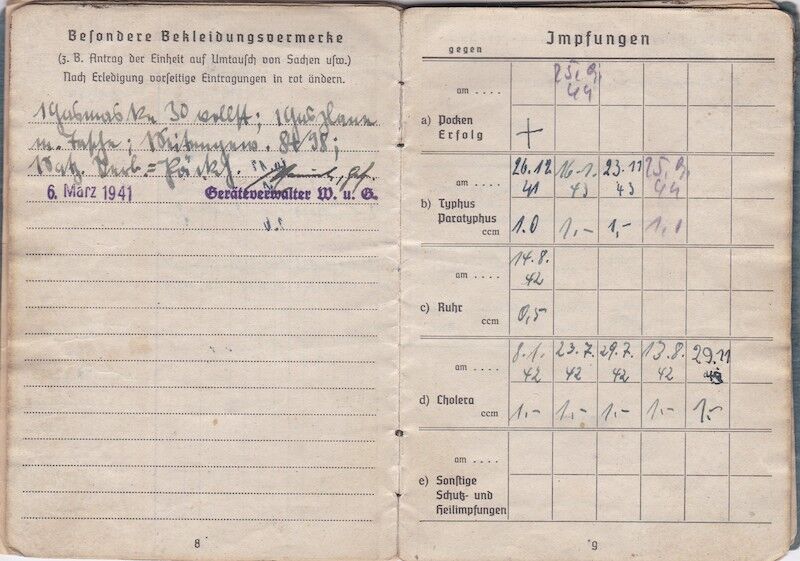 Besondere Bekleidungsvermerke
(z. B. Antrag der Einheit auf Umtausch von Sachen usw.)
Nach Erledigung vorseitige Eintragungen in rot ändern.
1 Gasmaske 30 vollst; 1 Gasplane
m. Tasche; 1 Seitengew. 84/98;
1 Satz Verb=Päckch.
6. März 1941 Geräteverwalter W. u. G.
8
Impfungen
gegen
am .... 25. 9. 44
a) Pocken
Erfolg +
am .... 26.12 41 16.1. 43 23.11 43 25.9. 44
b) Typhus
Paratyphus
ccm 1.0 1,- 1,- 1,0
am .... 14.8. 42
c) Ruhr
ccm 0,5
am .... 8.1. 42 23.7. 42 29.7. 42 13.8. 42 29.11
d) Cholera
ccm 1,- 1,- 1,- 1,- 1,-
am ....
e) Sonstige
Schutz- und
Heilimpfungen
9